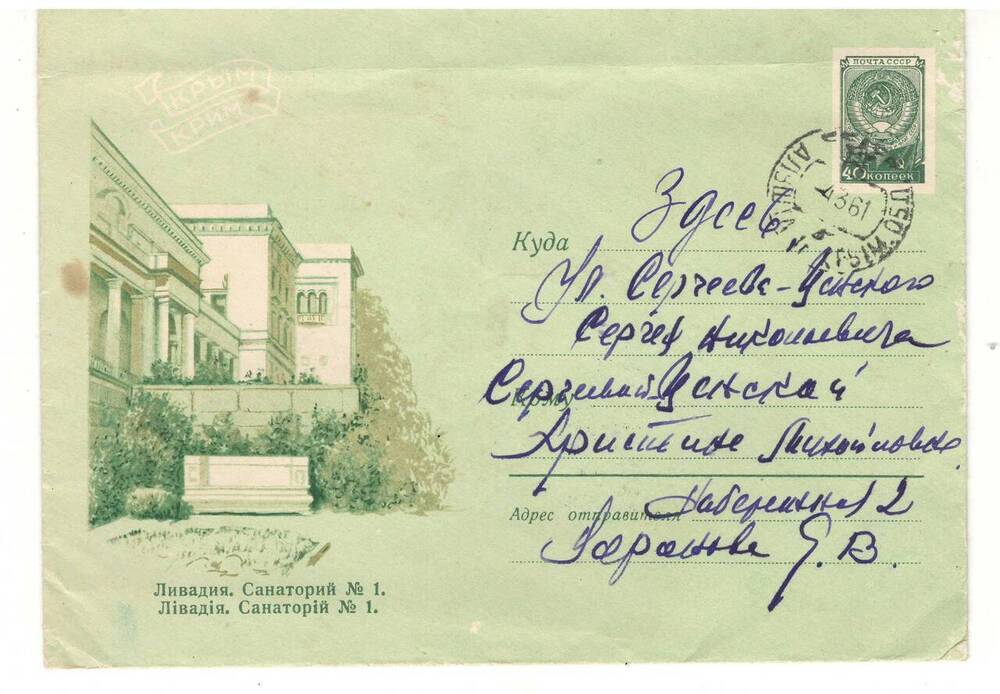 КРЫМ
КРИМ
ПОЧТА СССР
40 КОПЕЕК
4 3 61
Здесь
Куда
Ул. Сергеева-Ценского
Сергея Николаевича
Сергеевой-Ценской
Кому
Христине Михайловне
Набережная 2
Адрес отправителя
В.
Ливадия. Санаторий № 1.
Лівадія. Санаторій № 1.